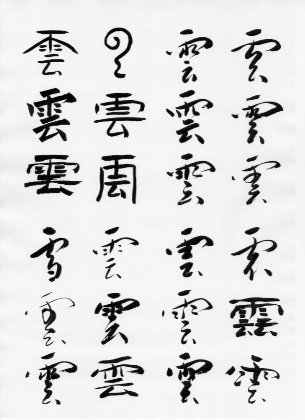 雲 云 雲 雲
雲 雲 雲 雲
雲 雲 雲 雲
雲 雲 雲 雲
雲 雲 雲 雲
雲 雲 雲 雲